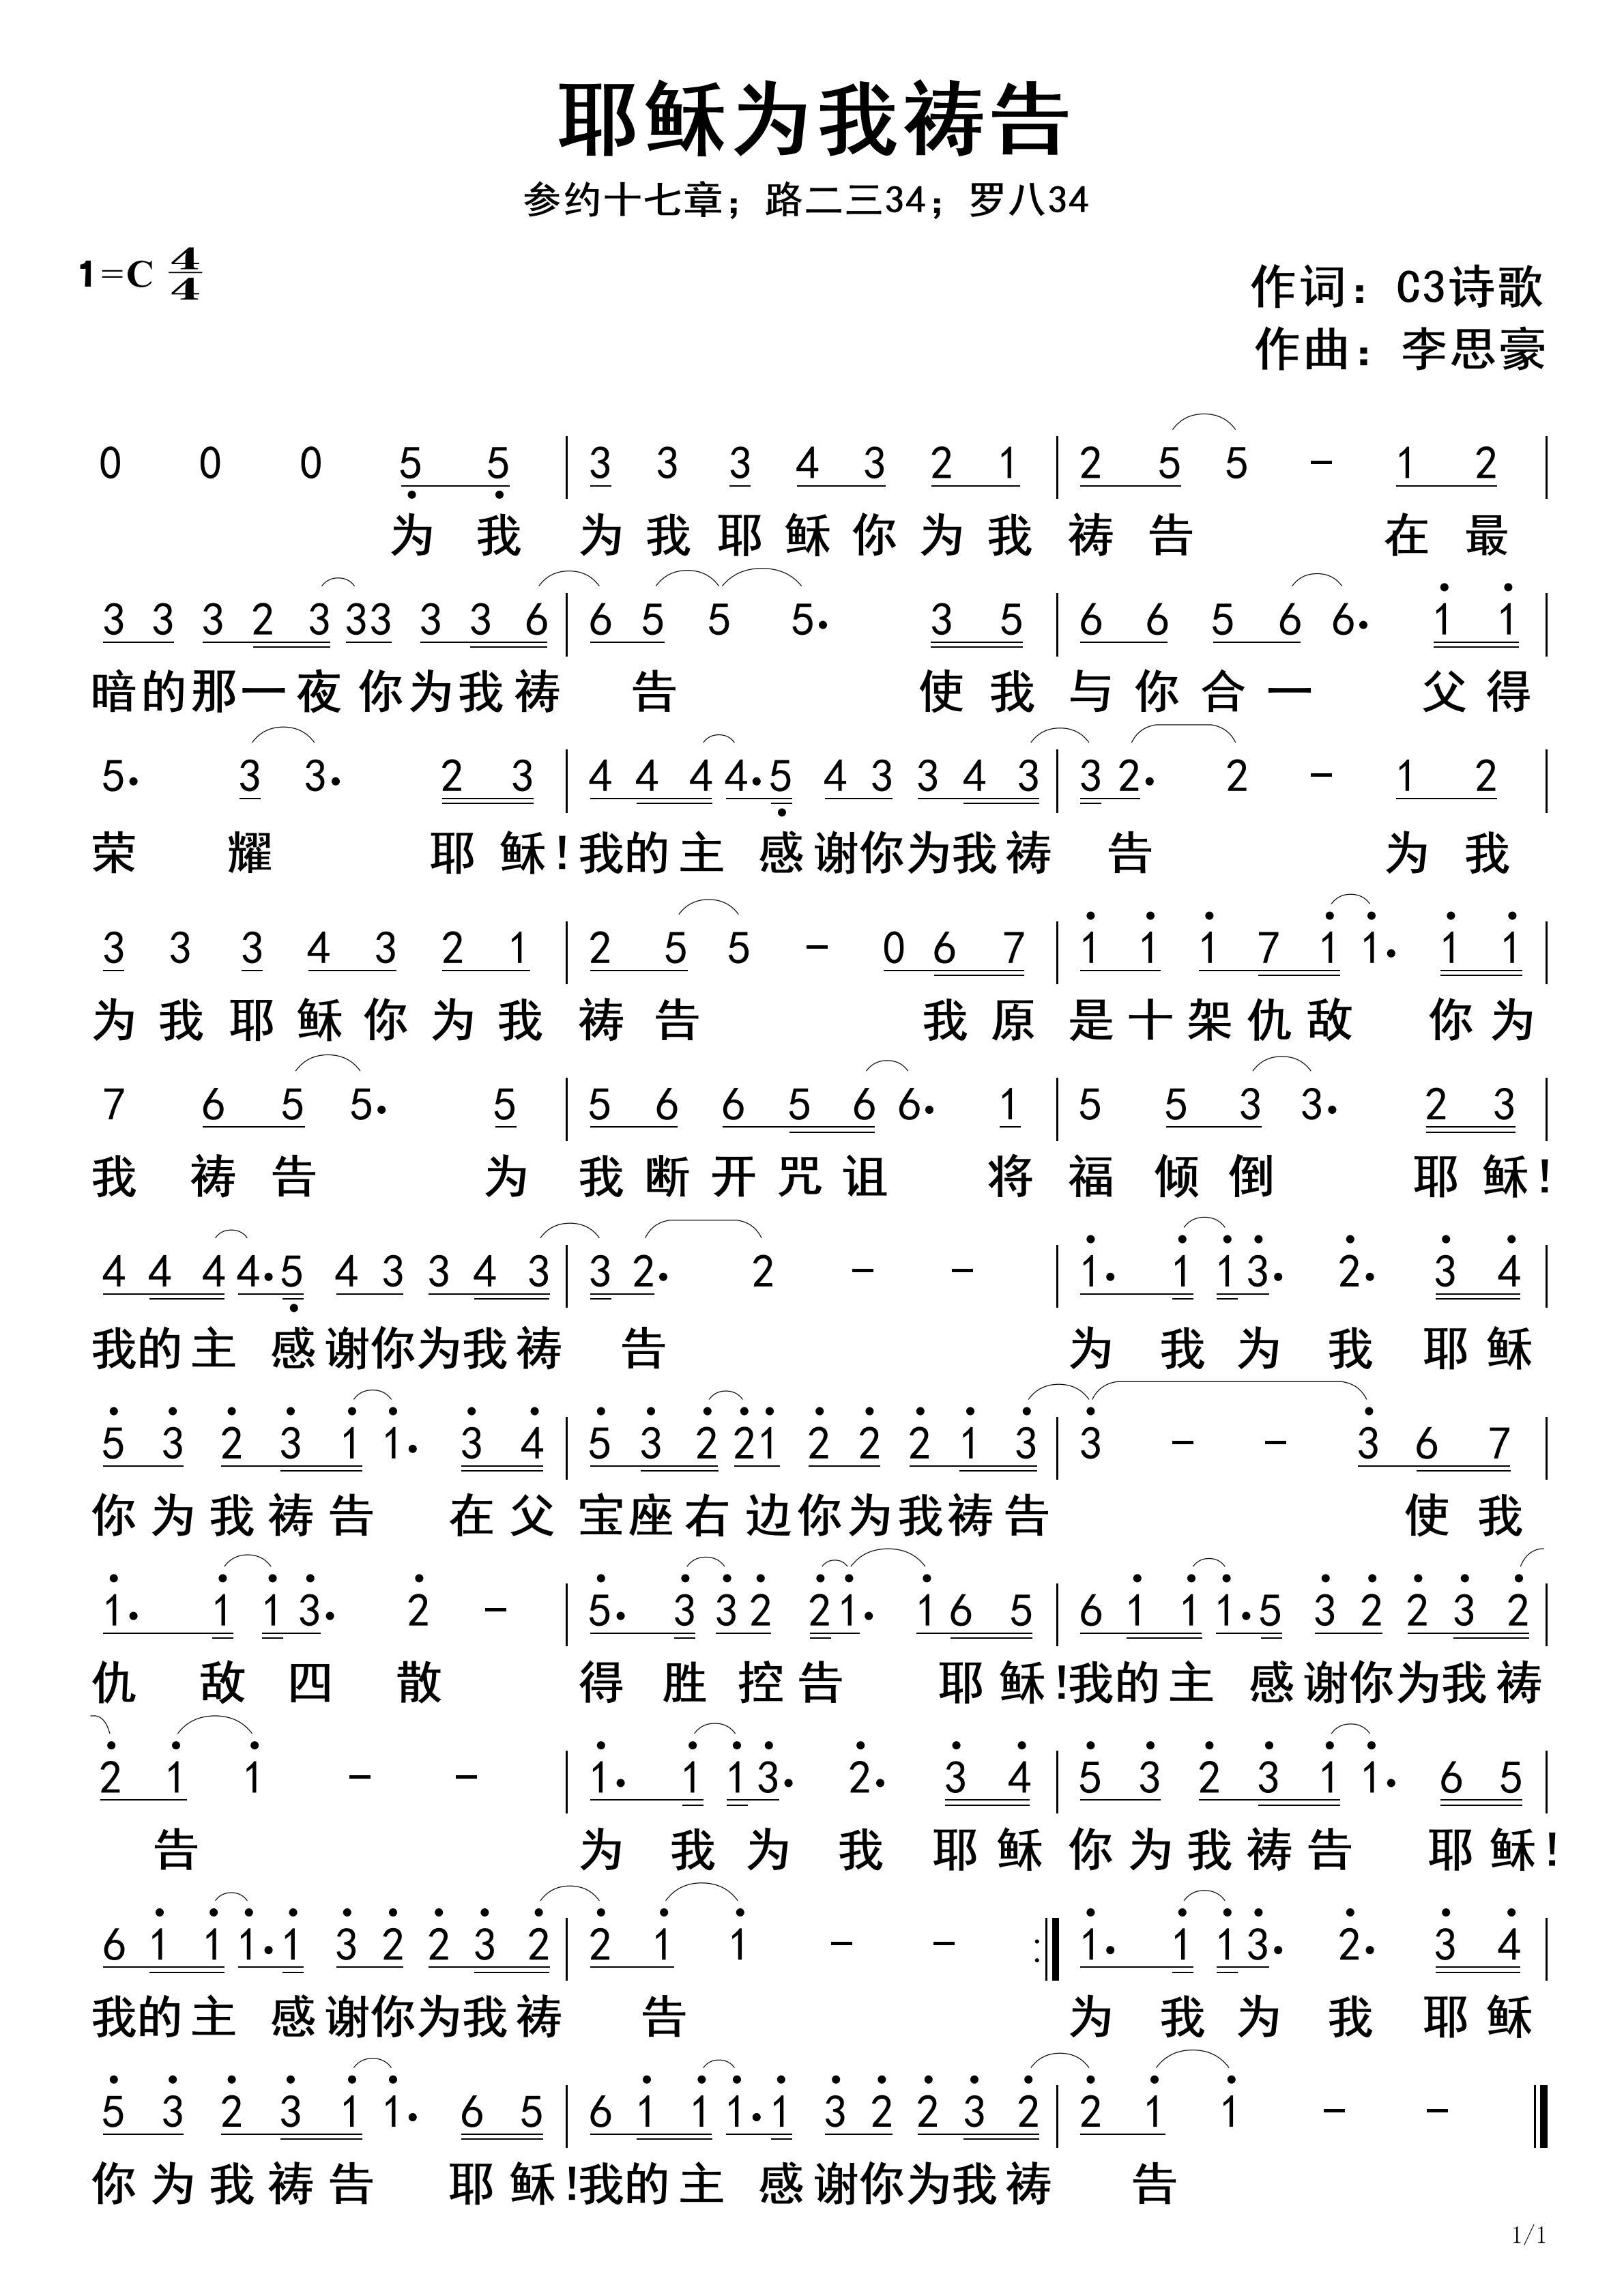 耶稣为我祷告
参约十七章；路二三34；罗八34
1=C 4/4
作词：C3诗歌
作曲：李思豪
0 0 0 5 5 | 3 3 3 4 3 2 1 | 2 5 5 - 1 2 |
为 我 为 我 耶 稣 你 为 我 祷 告 在 最
3 3 3 2 3 3 3 3 3 6 | 6 5 5 5. 3 5 | 6 6 5 6 6. 1 1 |
暗 的 那 一 夜 你 为 我 祷 告 使 我 与 你 合 一 父 得
5. 3 3. 2 3 | 4 4 4 4. 5 4 3 3 4 3 | 3 2. 2 - 1 2 |
荣 耀 耶 稣！我 的 主 感 谢 你 为 我 祷 告 为 我
3 3 3 4 3 2 1 | 2 5 5 - 0 6 7 | 1 1 1 7 1 1. 1 1 |
为 我 耶 稣 你 为 我 祷 告 我 原 是 十 架 仇 敌 你 为
7 6 5 5. 5 | 5 6 6 5 6 6. 1 | 5 5 3 3. 2 3 |
我 祷 告 为 我 断 开 咒 诅 将 福 倾 倒 耶 稣！
4 4 4 4. 5 4 3 3 4 3 | 3 2. 2 - - | 1. 1 1 3. 2. 3 4 |
我 的 主 感 谢 你 为 我 祷 告 为 我 为 我 耶 稣
5 3 2 3 1 1. 3 4 | 5 3 2 2 1 2 2 2 1 3 | 3 - - 3 6 7 |
你 为 我 祷 告 在 父 宝 座 右 边 你 为 我 祷 告 使 我
1. 1 1 3. 2 - | 5. 3 3 2 2 1. 1 6 5 | 6 1 1 1. 5 3 2 2 3 2 |
仇 敌 四 散 得 胜 控 告 耶 稣！我 的 主 感 谢 你 为 我 祷
2 1 1 - - | 1. 1 1 3. 2. 3 4 | 5 3 2 3 1 1. 6 5 |
告 为 我 为 我 耶 稣 你 为 我 祷 告 耶 稣！
6 1 1 1. 1 3 2 2 3 2 | 2 1 1 - - :| 1. 1 1 3. 2. 3 4 |
我 的 主 感 谢 你 为 我 祷 告 为 我 为 我 耶 稣
5 3 2 3 1 1. 6 5 | 6 1 1 1. 1 3 2 2 3 2 | 2 1 1 - - |
你 为 我 祷 告 耶 稣！我 的 主 感 谢 你 为 我 祷 告
1/1